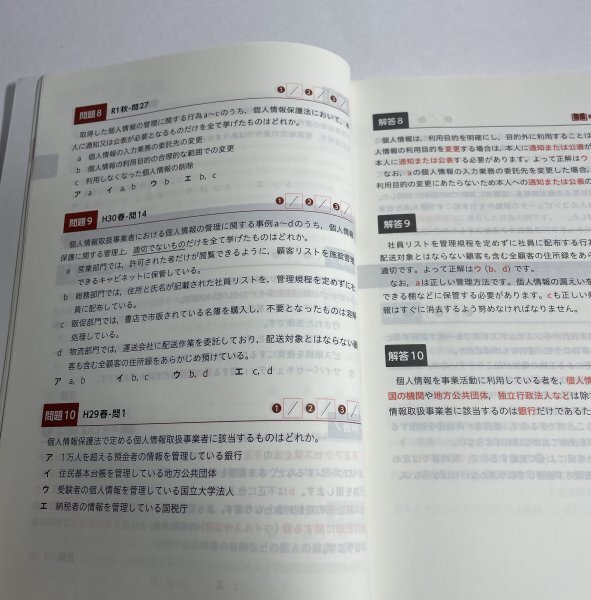 問題8 R1秋-問27
❶ ❷ ❸
取得した個人情報の管理に関する行為a〜cのうち，個人情報保護法において，本
人に通知又は公表が必要となるものだけを全て挙げたものはどれか。
a 個人情報の入力業務の委託先の変更
b 個人情報の利用目的の合理的な範囲での変更
c 利用しなくなった個人情報の削除
ア a イ a, b ウ b エ b, c
問題9 H30春-問14
❶ ❷ ❸
個人情報取扱事業者における個人情報の管理に関する事例a〜dのうち，個人情報
保護に関する管理上，適切でないものだけを全て挙げたものはどれか。
a 営業部門では，許可された者だけが閲覧できるように，顧客リストを施錠管理
できるキャビネットに保管している。
b 総務部門では，住所と氏名が記載された社員リストを，管理規程を定めずに社
員に配布している。
c 販促部門では，書店で市販されている名簿を購入し，不要となったものは溶解
処理している。
d 物流部門では，運送会社に配送作業を委託しており，配送対象とはならない顧
客も含む全顧客の住所録をあらかじめ預けている。
ア a, b イ b, c ウ b, d エ c, d
問題10 H29春-問1
❶ ❷ ❸
個人情報保護法で定める個人情報取扱事業者に該当するものはどれか。
ア 1万人を超える預金者の情報を管理している銀行
イ 住民基本台帳を管理している地方公共団体
ウ 受験者の個人情報を管理している国立大学法人
エ 納税者の情報を管理している国税庁
解答8
個人情報は，利用目的を明確にし，目的外に利用することは
人情報の利用目的を変更する場合は，本人に通知または公表が
本人に通知または公表する必要があります。よって正解はウ
なお，aの個人情報の入力業務の委託先を変更した場合，
利用目的の変更にあたらないため本人への通知または公表の
解答9
社員リストを管理規程を定めずに社員に配布する行為
配送対象とはならない顧客も含む全顧客の住所録をあら
適切です。よって正解はウ（b, d）です。
なお，aは正しい管理方法です。個人情報の漏えいを
できる棚などに保管する必要があります。cも正しい
報はすぐに消去するよう努めなければなりません。
解答10
個人情報を事業活動に利用している者を，個人情
国の機関や地方公共団体，独立行政法人などは除
情報取扱事業者に該当するのは銀行だけであるた